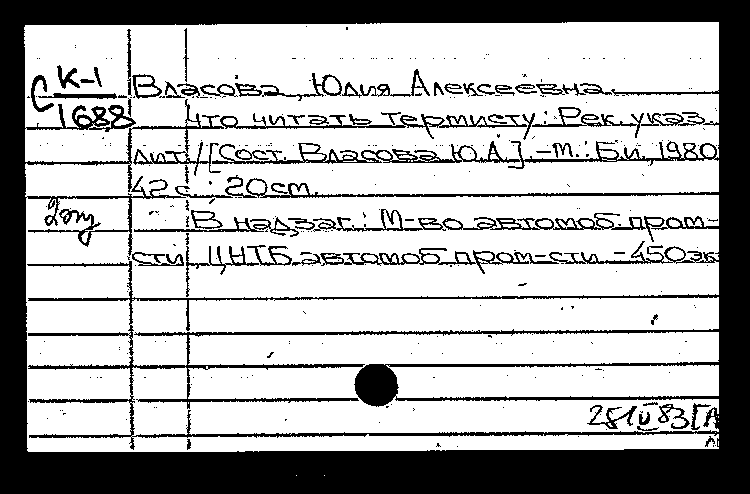 С К-1
1688
Власова, Юлия Алексеевна.
Что читать термисту: Рек. указ.
лит. / [Сост. Власова Ю.А.]. - М.: Б.и., 1980
42 с.; 20 см.
2 экз
В надзаг.: М-во автомоб. пром-
сти, ЦНТБ автомоб. пром-сти - 450 эк